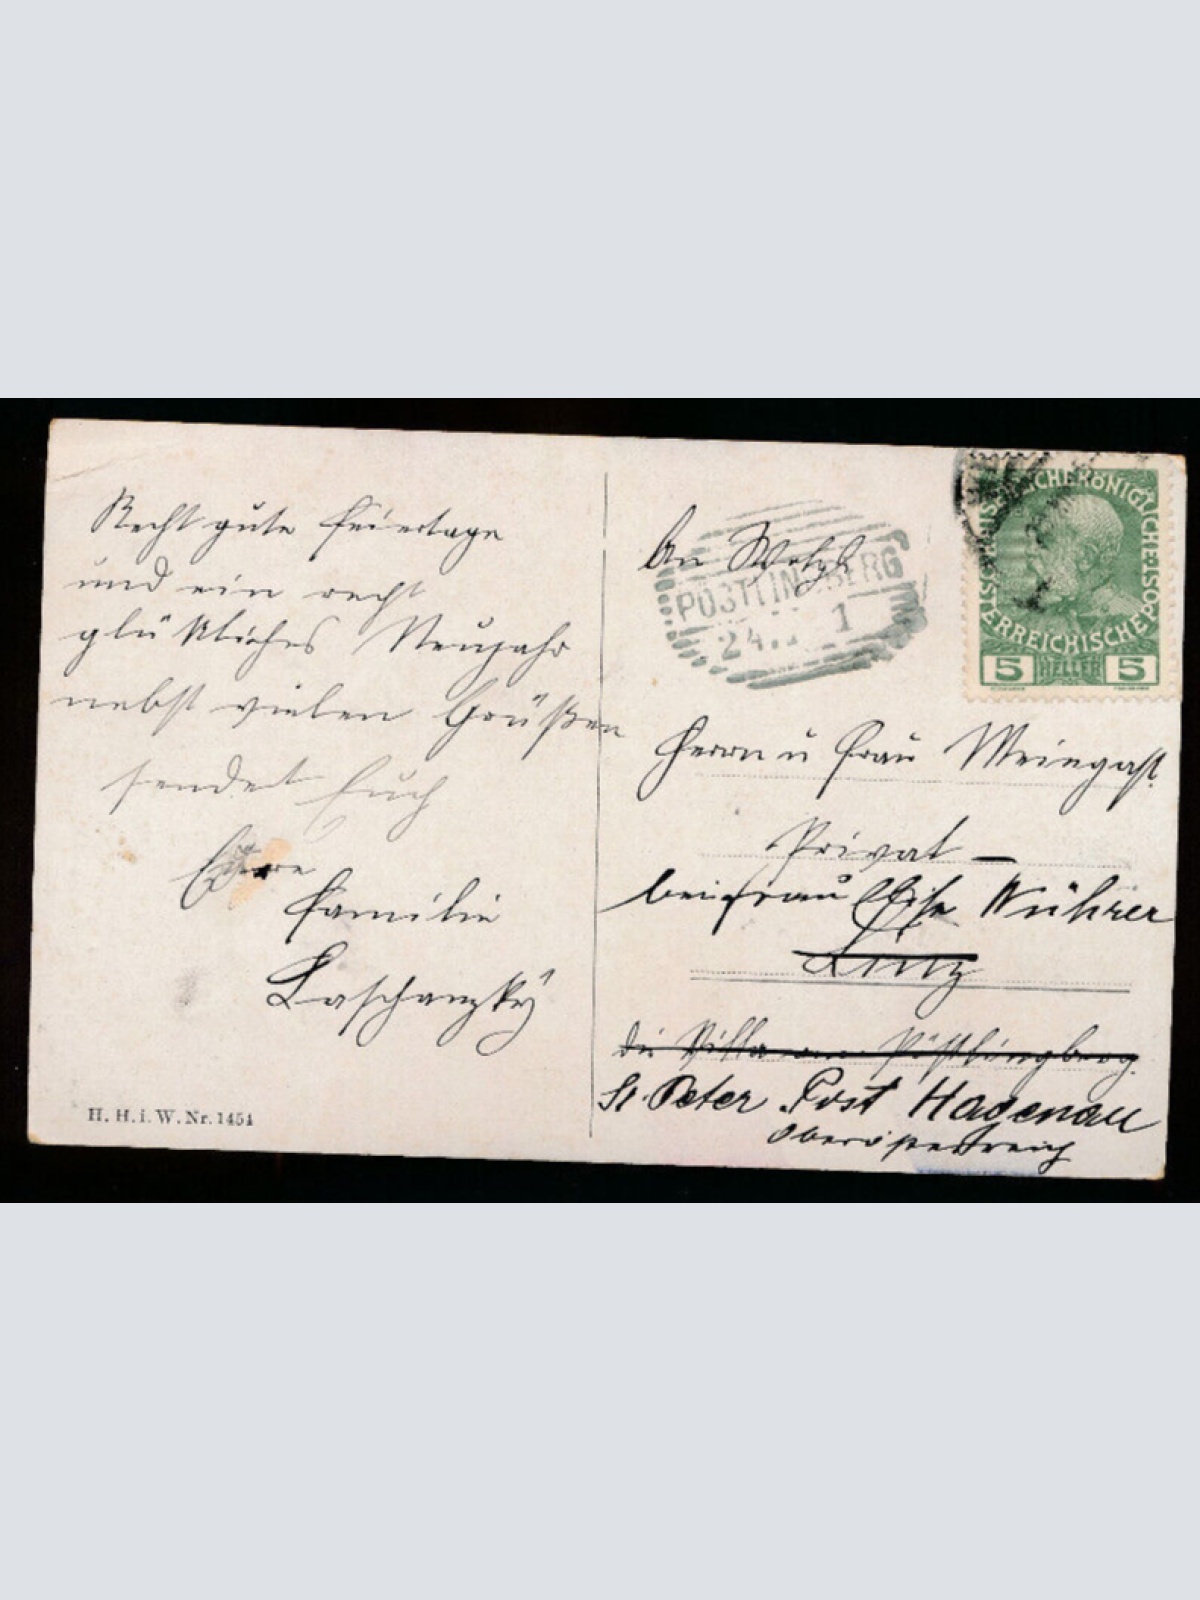 Recht gute Feiertage
und ein recht
glükliches Neujahr
nebst vielen Grüßen
sendet Euch
Familie
Laschanzky
H. H. i. W. Nr. 1454
An
PÖSTLINGBERG
24. 1
KAISERLICHE KÖNIGLICHE ÖSTERREICHISCHE POST
5 HELLER 5
Herrn u Frau Weingast.
Privat —
bei Frau Elise Wührer
Linz
die Villa am Pöstlingberg.
St. Peter Post Hagenau
Oberösterreich